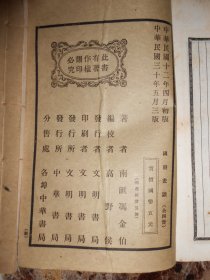 中華民國十二年四月初版
中華民國三十年五月三版
國朝畫識(全四冊)
實價國幣五元
此書有著作權翻印必究
著者 南匯馮金伯
編校者 高野侯
發行者 文明書局
印刷者 文明書局
發行所 文明書局
發行所 中華書局
分售處 各埠中華書局